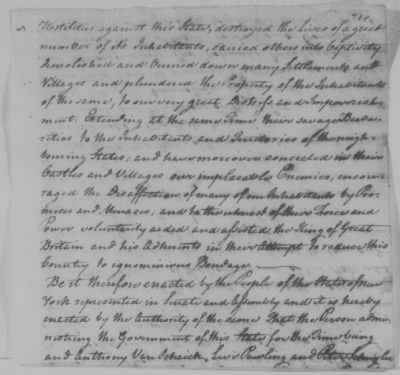 Hostilities against this State, destroyed the Lives of a great
number of its Inhabitants, carried others into Captivity
demolished and burned down many Settlements and
Villages and plundered the Property of the Inhabitants
of the same, to our very great Distress and Impoverish
ment. Extending at the same Time their savage Barba
rities to the Inhabitants and Territories of the neigh
bouring States; and have moreover concealed in their
Castles and Villages our implacable Enemies, encou
raged the Disaffection of many of our Inhabitants by Pro
mises and Menace; and to the utmost of their Force and
Power voluntarily aided and assisted the King of Great
Britain and his Adherents in their Attempt to reduce this
Country to ignominious Bondage.
Be it therefore enacted by the People of the State of New
York represented in Senate and Assembly and it is hereby
enacted by the Authority of the same That the Person admi
nistring the Government of this State for the Time being
and Anthony Van Schaick, Levi Pawling and Peter Schuyler